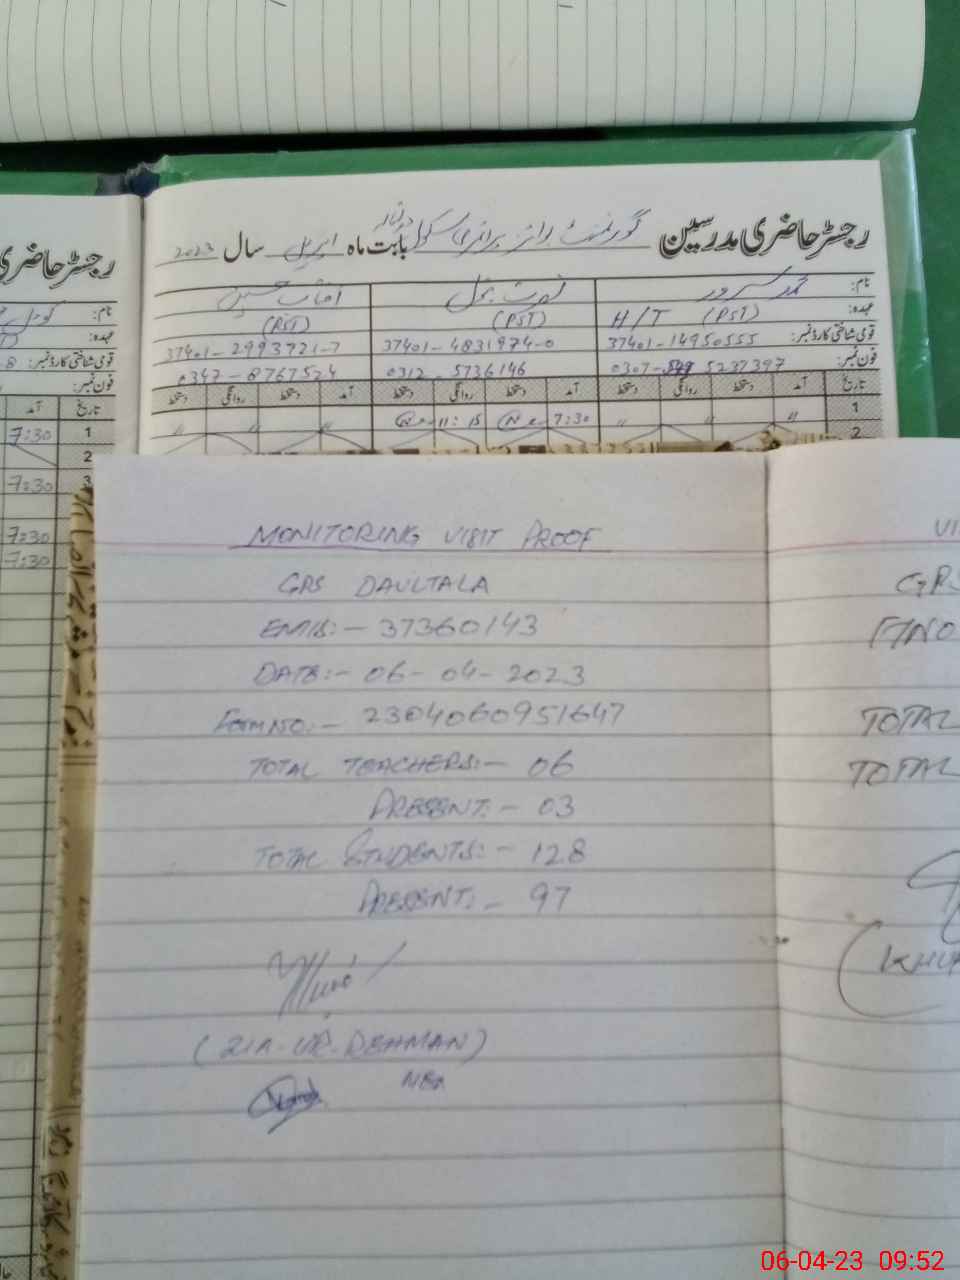 رجسٹر حاضری مدرسین گورنمنٹ پرائمری سکول دولتالہ بابت ماہ اپریل سال 2023
نام: محمد سرور
عہدہ: H/T (PST) (PST) (PST)
قومی شناختی کارڈ نمبر: 37401-14950555 37401-4831974-0 37401-2993721-7
فون نمبر: 0307- 5237397 0312-5736146 0347-8767524
تاریخ آمد دستخط روانگی دستخط آمد دستخط روانگی دستخط آمد دستخط روانگی دستخط
1 " " 7:30 11:15 " "
2
رجسٹر حاضری
نام:
عہدہ:
قومی شناختی کارڈ نمبر:
فون نمبر:
تاریخ آمد
1 7:30
2
3 7:30
7:30
7:30
MONITORING VISIT PROOF
GPS DAULTALA
EMIS:- 37360143
DATE:- 06-04-2023
Form NO:- 2304060951647
TOTAL TEACHERS:- 06
PRESENT:- 03
TOTAL STUDENTS:- 128
PRESENT:- 97
(ZIA-UR-REHMAN)
MEA
VI
GPS
TOTAL
TOTAL
06-04-23 09:52